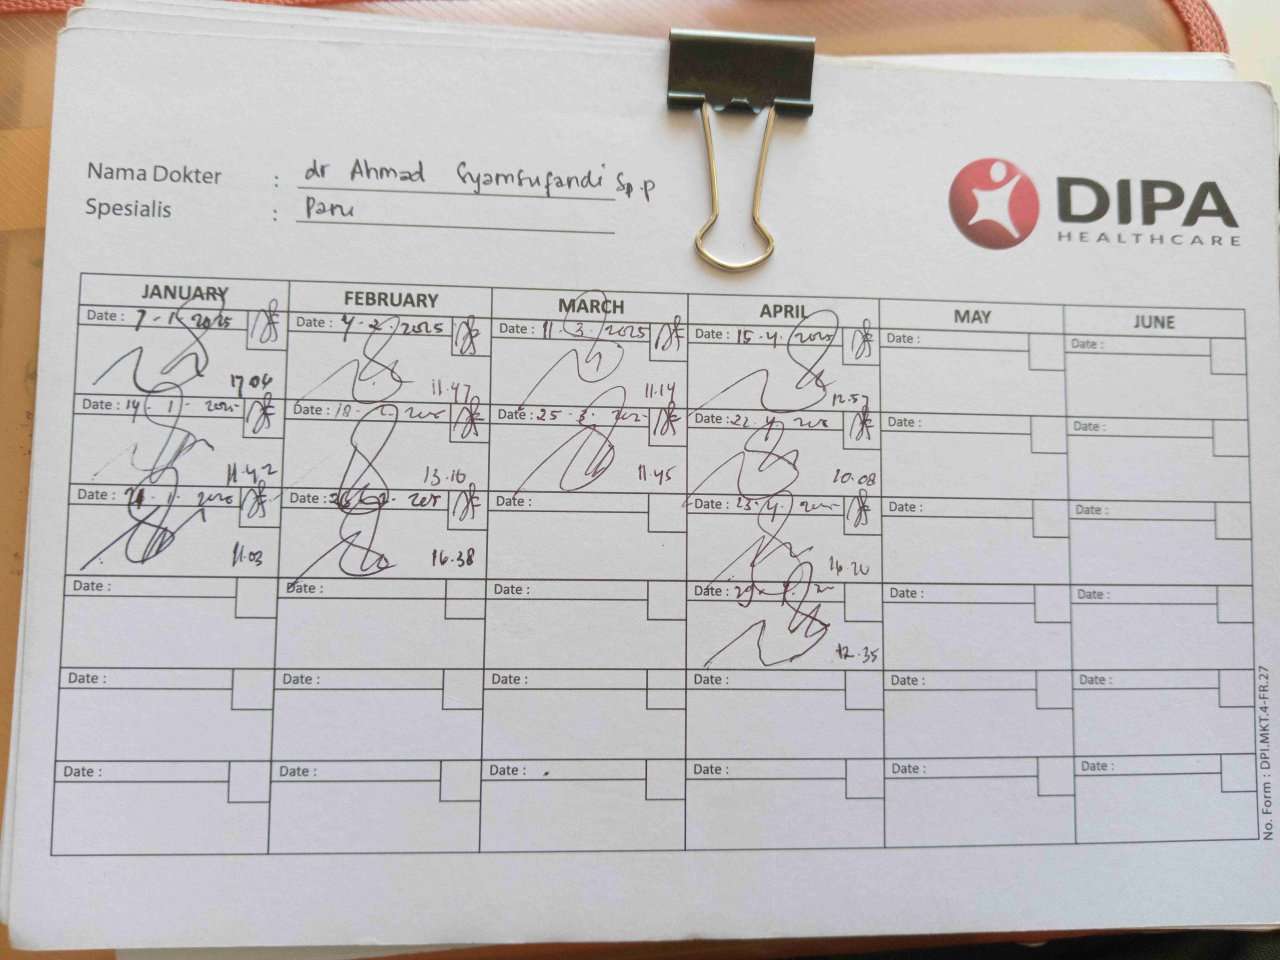 Nama Dokter : dr Ahmad Syamsufandi Sp.P
Spesialis : Paru
DIPA
HEALTHCARE
JANUARY FEBRUARY MARCH APRIL MAY JUNE
Date : 7-1-2025 Date : 4-2-2025 Date : 11-3-2025 Date : 15-4-2025 Date : Date :
17.04 11.47 11.14 12.57
Date : 14-1-2025 Date : 18-2-2025 Date : 25-3-2025 Date : 22-4-2025 Date : Date :
11.42 13.16 11.45 10.08
Date : 21-1-2025 Date : Date : Date : 23-4-2025 Date : Date :
11.03 16.38 16.20
Date : Date : Date : Date : 29-4- Date : Date :
12.35
Date : Date : Date : Date : Date : Date :
Date : Date : Date : Date : Date : Date :
No. Form : DPI.MKT.4-FR.27